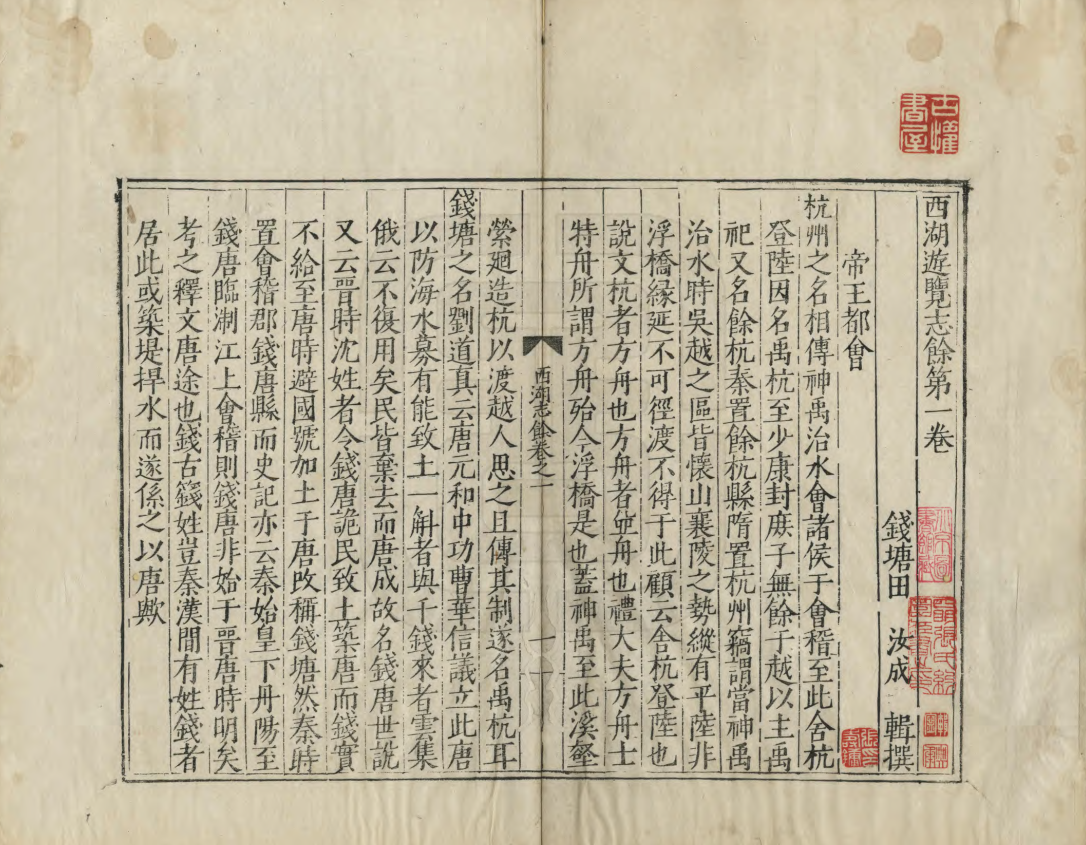 西湖遊覽志餘第一卷
錢塘田 汝成 輯撰
帝王都會
杭州之名相傳神禹治水會諸侯于會稽至此舍杭
登陸因名禹杭至少康封庻子無餘于越以主禹
祀又名餘杭秦置餘杭縣隋置杭州竊謂當神禹
治水時吳越之區皆懷山襄陵之勢縱有平陸非
浮橋緣延不可徑渡不得于此顧云舍杭登陸也
說文杭者方舟也方舟者並舟也禮大夫方舟士
特舟所謂方舟殆今浮橋是也蓋神禹至此溪壑
縈廻造杭以渡越人思之且傳其制遂名禹杭耳
錢塘之名劉道真云唐元和中功曹華信議立此唐
以防海水募有能致土一斛者與千錢來者雲集
俄云不復用矣民皆棄去而唐成故名錢唐世說
又云晉時沈姓者令錢唐詭民致土築唐而錢實
不給至唐時避國號加土于唐改稱錢塘然秦時
置會稽郡錢唐縣而史記亦云秦始皇下丹陽至
錢唐臨淛江上會稽則錢唐非始于晉唐時明矣
考之釋文唐途也錢古籛姓豈秦漢間有姓錢者
居此或築堤捍水而遂係之以唐歟
西湖志餘卷之一
一
古懽
書屋